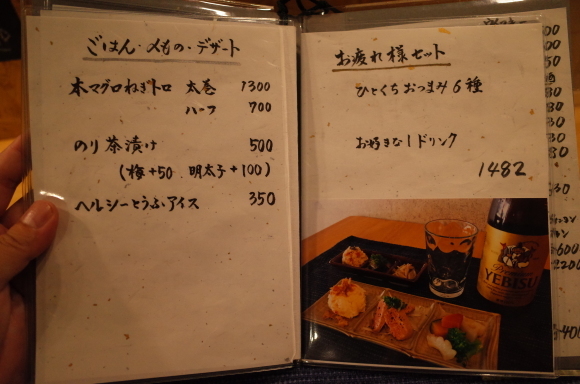 ごはん・〆もの・デザート
本マグロねぎトロ 太巻 1300
ハーフ 700
のり茶漬け 500
(梅+50 明太子+100)
ヘルシーとうふアイス 350
お疲れ様セット
ひとくちおつまみ6種
お好きな1ドリンク
1482
YEBISU